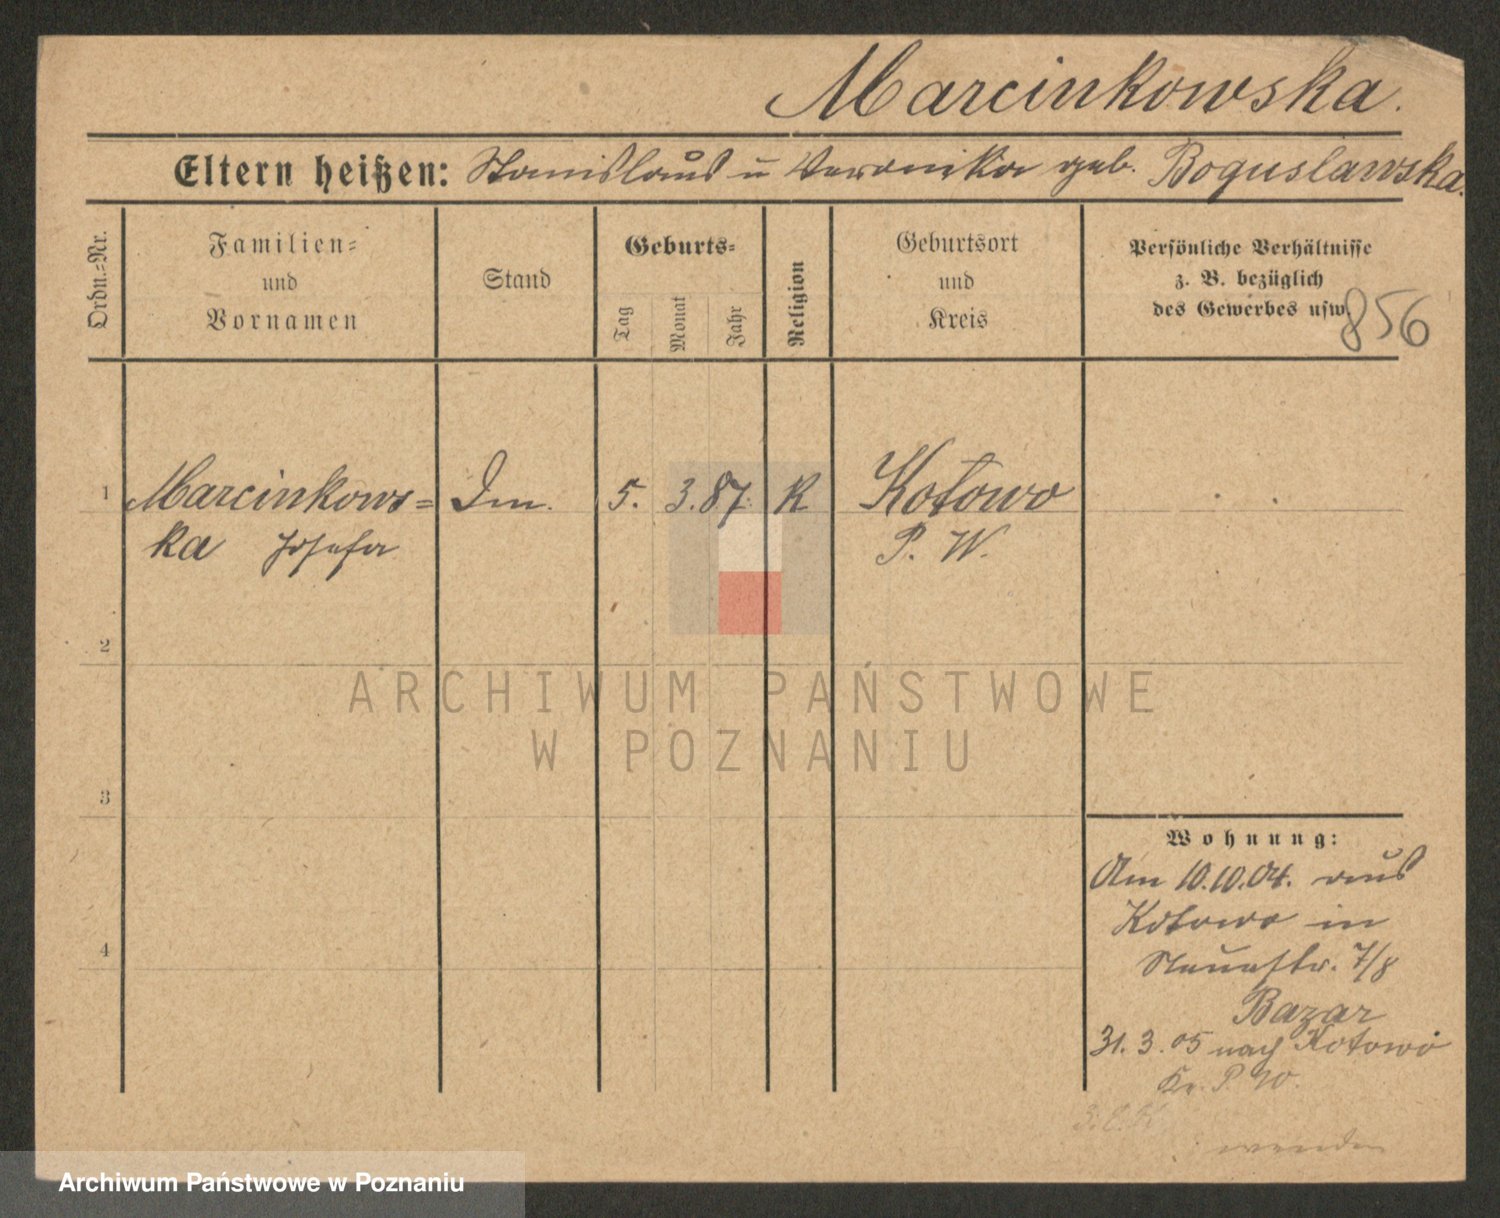 Marcinkowska.
Eltern heißen: Stanislaus u Veronika geb. Boguslawska.
Ordn.=Nr.
Familien=
und
Vornamen
Stand
Geburts=
Tag
Monat
Jahr
Religion
Geburtsort
und
Kreis
Persönliche Verhältnisse
z. B. bezüglich
des Gewerbes usw.
856
1 Marcinkows= 5. 3. 87. K Kotowo
ka Josefa P. W.
2
3
4
ARCHIWUM PAŃSTWOWE
W POZNANIU
Wohnung:
Am 10.10.04. aus
Kotowo in
Neuestr. 7/8
Bazar
31. 3. 05 nach Kotowo
Kr. P. W.
wenden
Archiwum Państwowe w Poznaniu